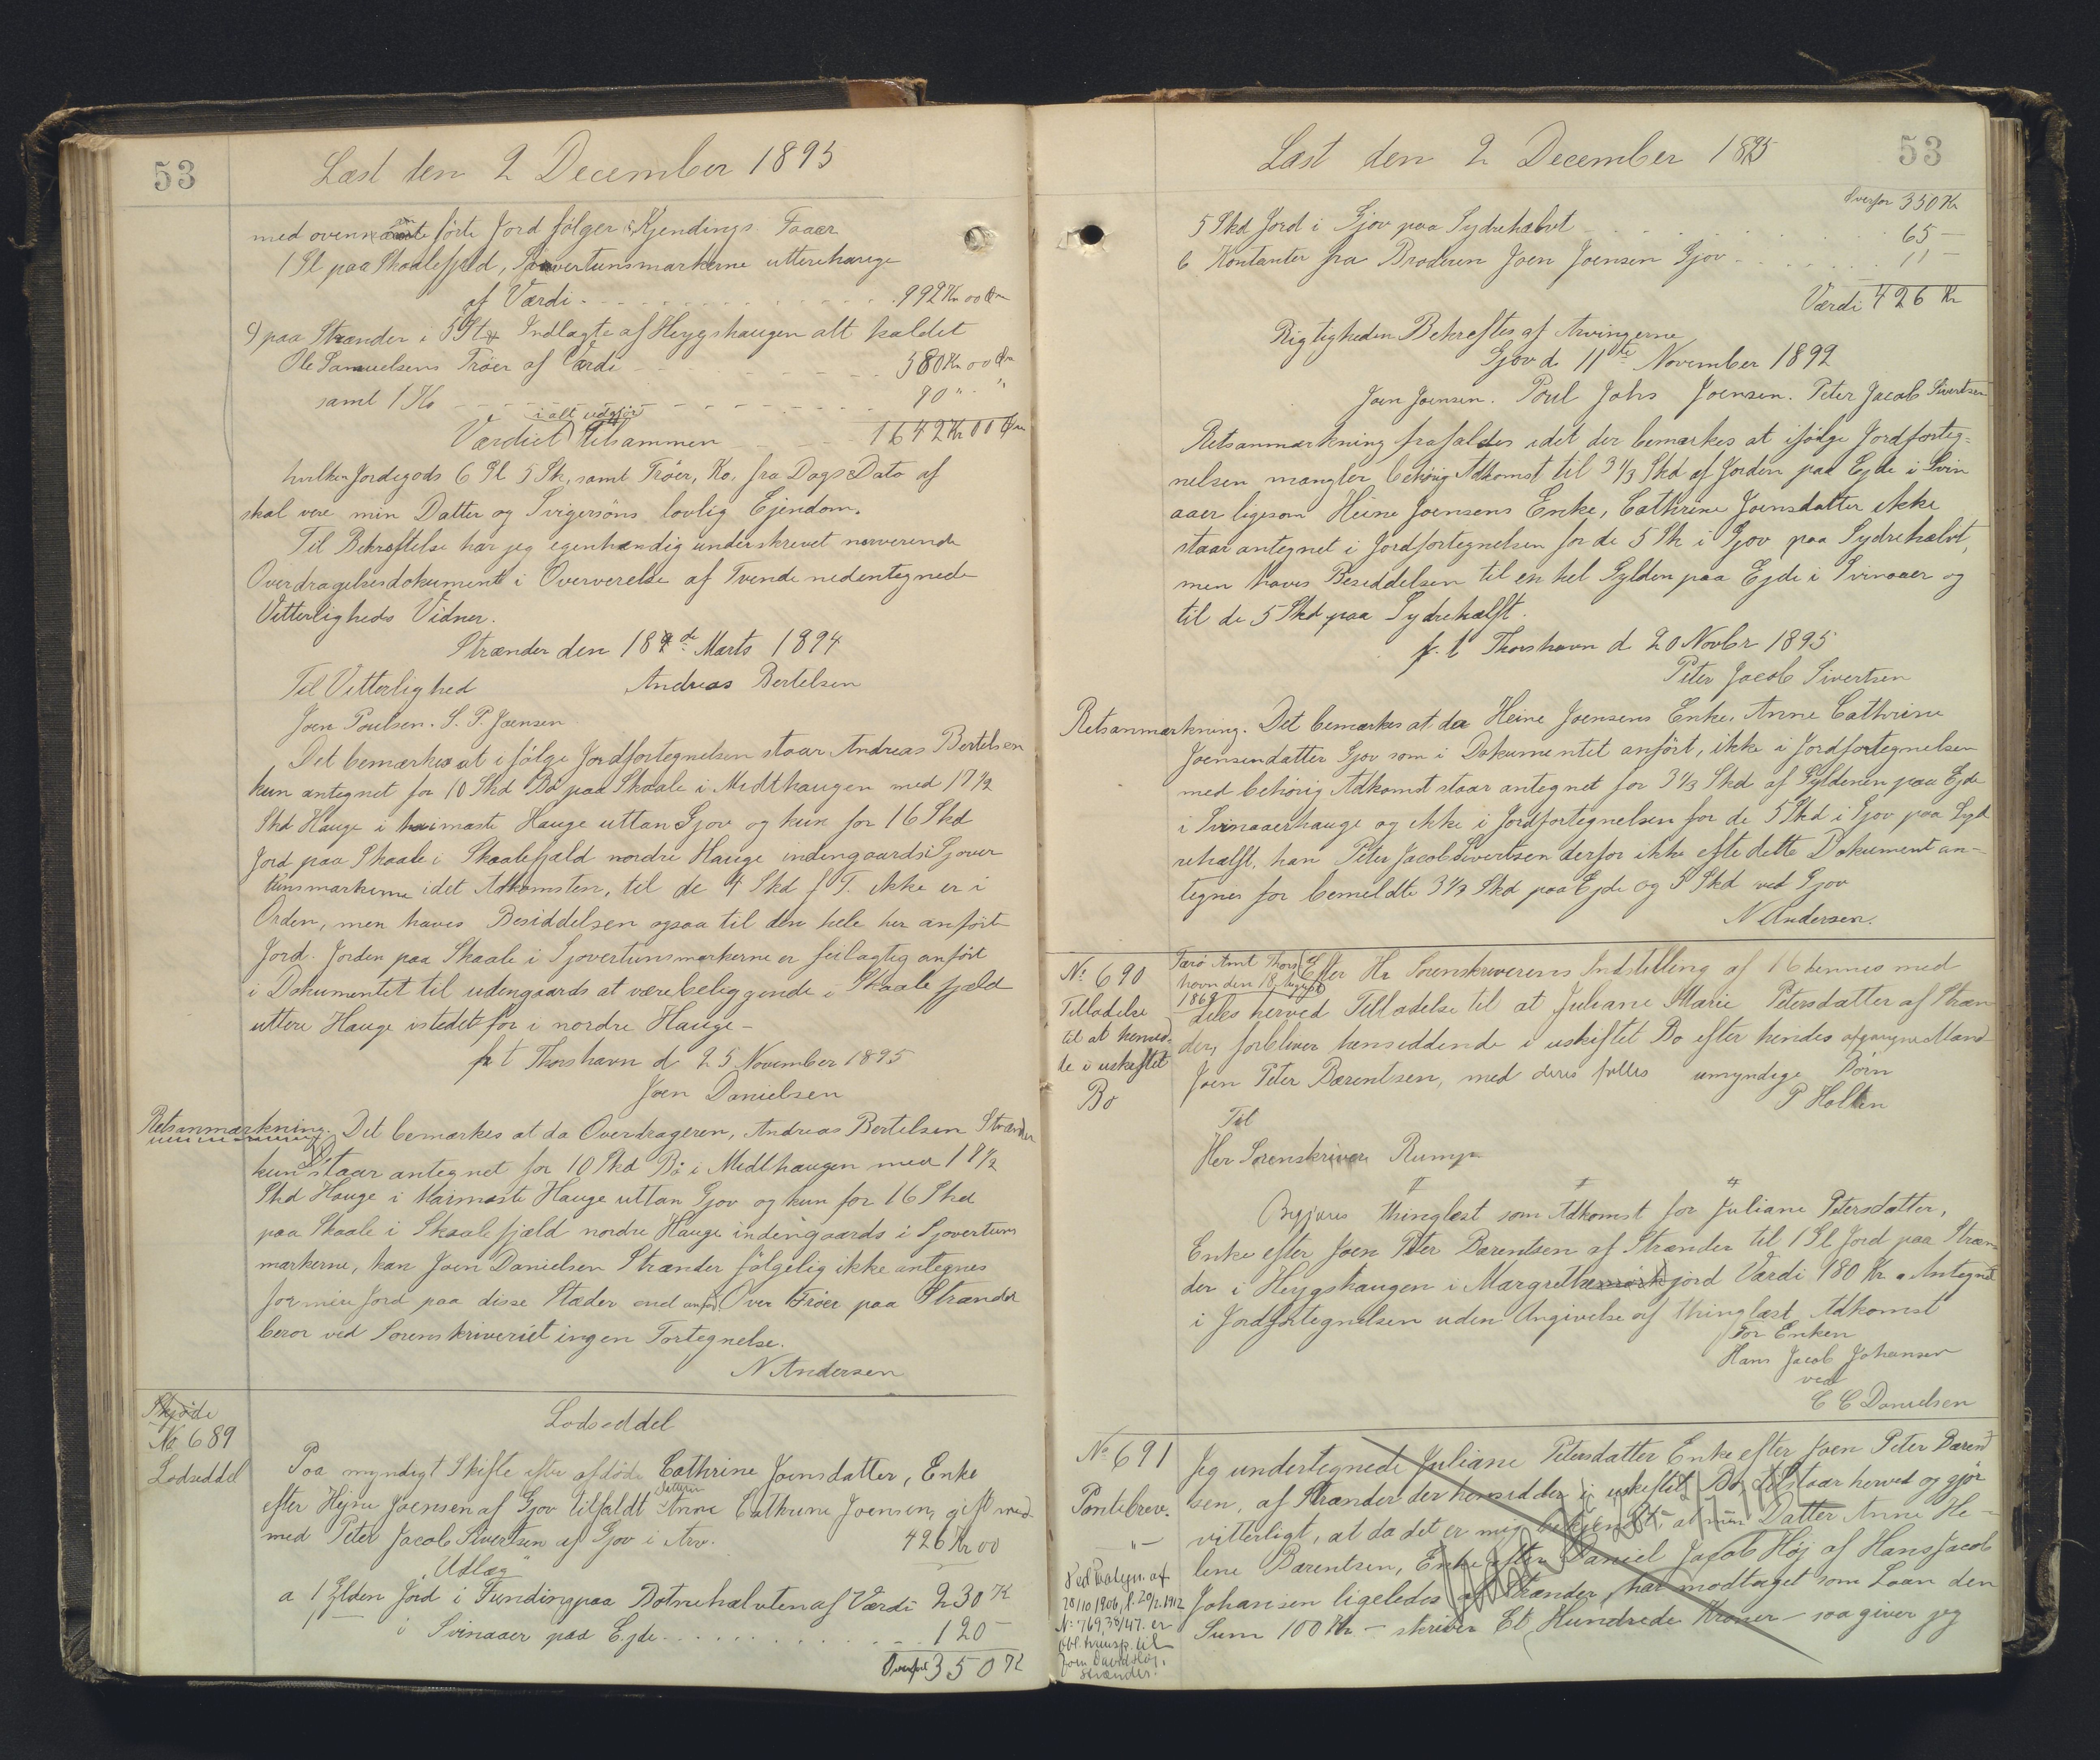 53
Læst den 2 December 1895
med ovenanførte Jord følger Kjendings Faaer
1 Gl paa Skaalefjeld, Sjovertunsmarkerne utterehauge
af Værdi - - - 992 Kr 00 Øre
c) paa Strænder i 5 Sk Indlagte af Heygshaugen alt kaldet
Ole Samuelsens Trøer af Værdi - - - 380 Kr 00 Øre
samt 1 Ko - - - 90 " - "
i alt udgjør
Værdiel tilsammen - - - 1642 Kr 00 Øre
hvilken Jordegods 6 Gl 5 Sk, samt Trøer, Ko, fra Dags Dato af
skal vere min Datter og Svigersöns lovlig Ejendom.
Til Bekræftelse har jeg egenhændig underskrevet nerverende
Overdragelsesdokument i Oververelse af Tvende nedentegnede
Vitterligheds Vidner.
Strænder den 18de Marts 1894
Til Vitterlighed Andreas Bertelsen
Joen Poulsen. S. P. Joensen
Det bemærkes at i følge Jordfortegnelsen staar Andreas Bertelsen
kun antegnet for 10 Skd Bö paa Skaale i Midthaugen med 17 1/2
Skd Hauge i haimaste Hauge uttan Gjov og kun for 16 Skd
Jord paa Skaale i Skaalefjald nordre Hauge indengaards i Sjover
tunsmarkerne idet Adkomsten, til de 4 Skd f T. ikke er i
Orden, men haves Besiddelsen ogsaa til den hele her anførte
Jord. Jorden paa Skaale i Sjovertunsmarkerne er feilagtig anført
i Dokumentet til udengaards at være beliggende i Skaale fjæld
uttere Hauge istedetfor i nordre Hauge -
p t Thorshavn d 25 November 1895
Joen Danielsen
Retsanmærkning. Det bemærkes at da Overdrageren, Andreas Bertelsen Strænder
kun staar antegnet for 10 Skd Bö i Midthaugen med 17 1/2
Skd Hauge i Haimaste Hauge uttan Gjov og kun for 16 Skd
paa Skaale i Skaale fjæld nordre Hauge indengaards i Sjovertuns
markerne, kan Joen Danielsen Strænder følgelig ikke antegnes
for mere Jord paa disse Stæder end anfør Over Trøer paa Strænder
beror ved Sorenskriveriet ingen Fortegnelse.
N Andersen
Skjøde
No 689
Lodseddel
Lodseddel
Paa myndigt Skifte efter afdøde Cathrine Joensdatter, Enke
efter Hejne Joensen af Gjov tilfaldt Datteren Anne Cathrine Joensen, gift med
med Peter Jacob Sivertsen af Gjov i Arv. 426 Kr 00
Udlæg
a 1 Gylden Jord i Funding paa Botnehalvten af Værdi 230 K
1 — i Svinaaer paa Ejde - - - 120 -
Overført 350 K
53
Læst den 2 December 1895
Overfor 350 Kr
5 Skd Jord i Gjov paa Sydrehalvt - - - 65 —
6 Kontanter fra Broderen Joen Joensen Gjov - - - 11 —
Værdi 426 Kr
Rigtigheden Bekræftes af Arvingerne
Gjov d. 11te November 1892
Joen Joensen. Poul Johs Joensen. Peter Jacob Sivertsen
Retsanmærkning frafaldes idet der bemærkes at ifølge Jordforteg-
nelsen mangler behörig Adkomst til 3 1/3 Skd af Jorden paa Ejde i Svin
aaer ligesom Heine Joensens Enke, Cathrine Joensdatter ikke
staar antegnet i Jordfortegnelsen for de 5 Sk i Gjov paa Sydrehalvt,
men haves Besiddelsen til en hel Gylden paa Ejde i Svinaaer og
til de 5 Skd paa Sydrehalft.
p. t Thorshavn d 20 Novbr 1895
Peter Jacob Sivertsen
Retsanmærkning. Det bemærkes at da Heine Joensens Enke, Anne Cathrine
Joensendatter Gjov som i Dokumentet anført, ikke i Jordfortegnelsen
med behörig Adkomst staar antegnet for 3 1/3 Skd af Gyldenen paa Ejde
i Svinaaerhauge og ikke i Jordfortegnelsen for de 5 Skd i Gjov paa Syd
rehalft, kan Peter Jacob Sivertsen derfor ikke efte dette Dokument an-
tegnes for bemeldte 3 1/3 Skd paa Ejde og 5 Skd ved Gjov
N Andersen.
No 690
Tilladelse
til at hensid-
de i uskiftet
Bo
Færö Amt Thors
havn den 18 August
1869
Efter Hr Sorenskriverens Indstilling af 16 dennes med
deles herved Tilladelse til at Juliane Marie Petersdatter af Stræn
der, forbliver hensiddende i uskiftet Bo efter hendes afgangne Mand
Joen Peter Barentsen, med deres fælles umyndige Börn
P Holten
Til
Her Sorenskriver Rump
Begjæres thinglæst som Adkomst for Juliane Petersdatter,
Enke efter Joen Peter Barentsen af Strænder til 1 Gl Jord paa Stræn-
der i Heygshaugen i Margrethe jord Værdi 180 Kr. Antegnet
i Jordfortegnelsen uden Angivelse af thinglæst Adkomst
For Enken
Hans Jacob Johansen
ved
C C Danielsen
No 691
Pantebrev.
— " —
Ved Paategn. af
28/10 1906, l. 20/2 1912
No 769, 38/47. er
Obl. transp. til
Joen David Höj,
Strænder.
Jeg undertegnede Juliane Petersdatter Enke efter Joen Peter Barent
sen, af Strænder der hensidder i uskiftet Bo, tilstaar herved og gjör
vitterligt, at da det er mig bekjendt, at min Datter Anne He-
lene Barentsen, Enke efter Daniel Jacob Höj af Hans Jacob
Johansen ligeledes af Strænder, har modtaget som Laan den
Sum 100 Kr. — skriver Et Hundrede Kroner — saa giver jeg